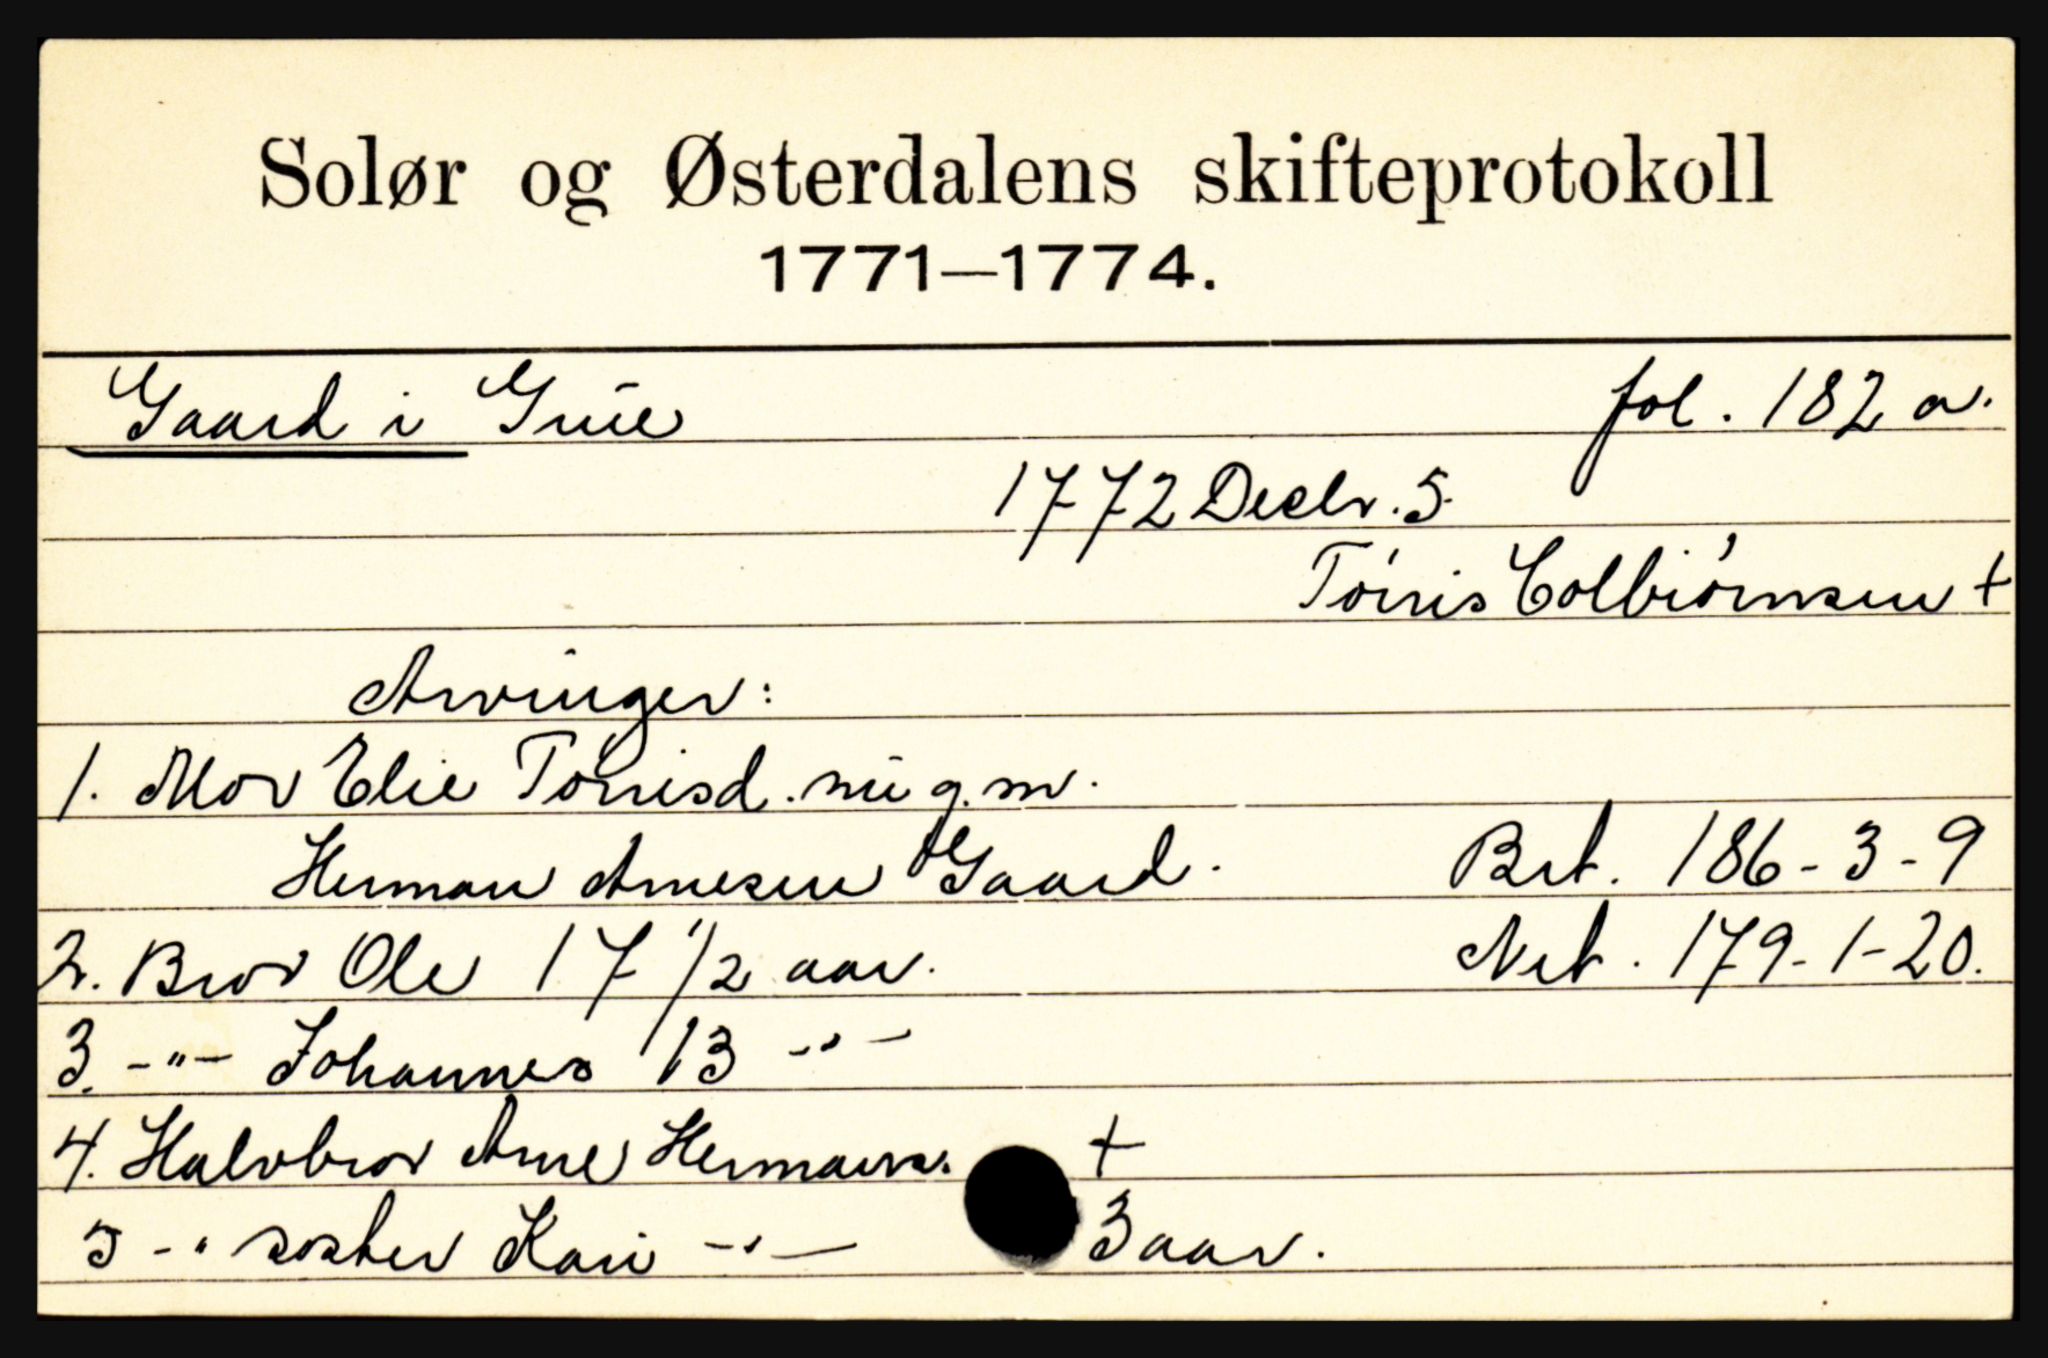 Solør og Østerdalens skifteprotokoll
1771—1774.
Gaard i Grue fol. 182 a.
1772 Decbr. 5.
Tøris Colbiørnsen +
Arvinger:
1. Mor Elie Tønisd. nu g. m.
Herman Arnesen Gaard. Brt. 186-3-9
2. Bror Ole 17 1/2 aar. Net. 179-1-20.
3. -"- Johannes 13 -"-
4. Halvbror Arne Hermans. +
5 -" søster Kari -"- 3 aar.